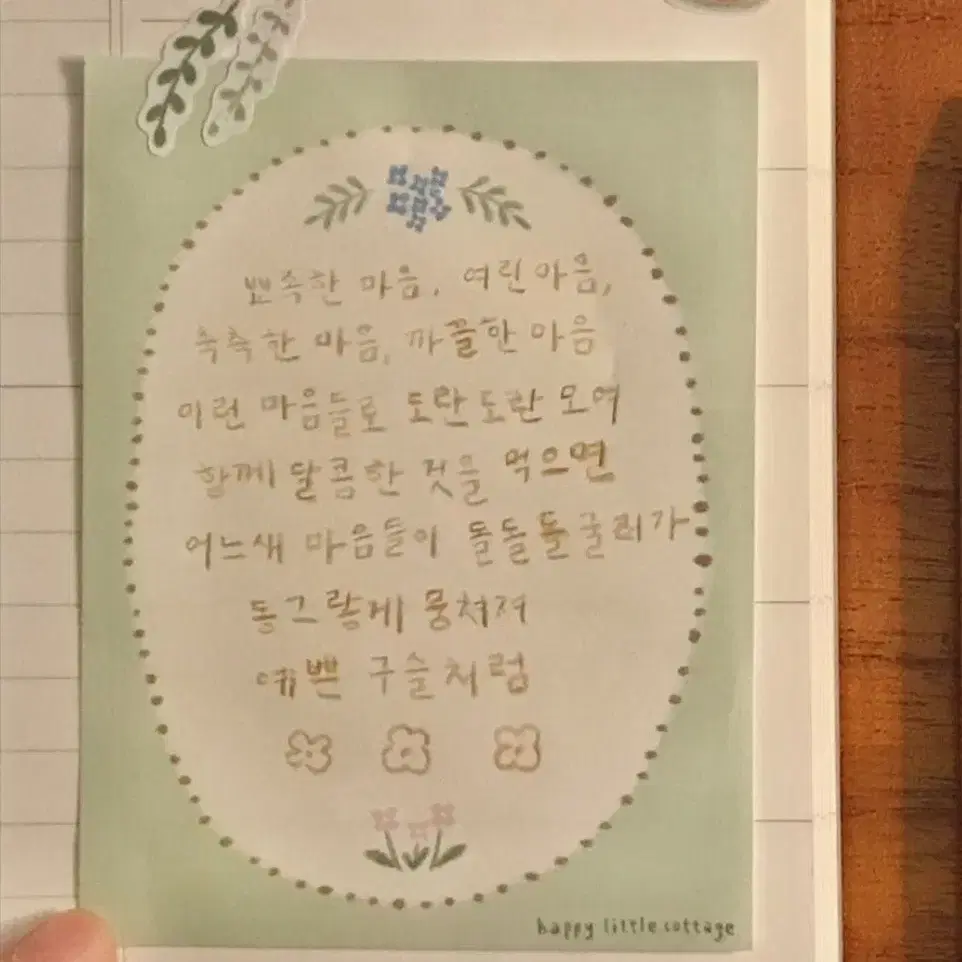 뾰족한 마음, 여린마음,
축축한 마음, 까끌한 마음
이런 마음들로 도란도란 모여
함께 달콤한 것을 먹으면
어느새 마음들이 돌돌돌굴러가
동그랗게 뭉쳐져
예쁜 구슬처럼
happy little cottage